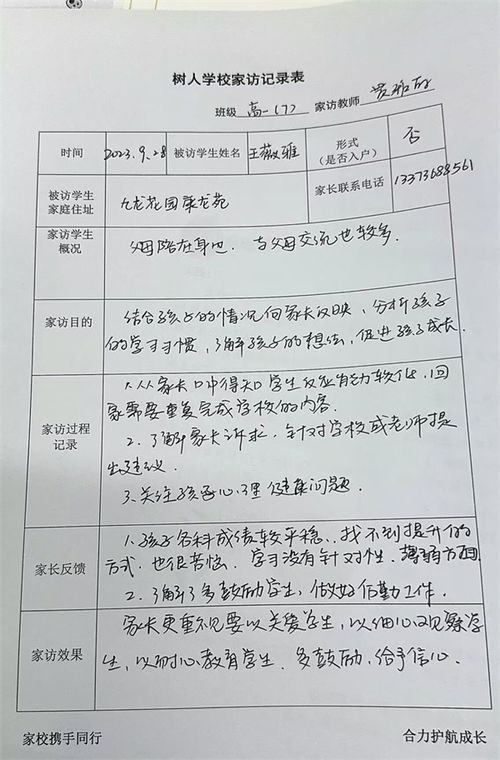 树人学校家访记录表
班级 高一(7) 家访教师
时间 2023.9.28 被访学生姓名 王薇雅 形式(是否入户) 否
被访学生家庭住址 九龙花园乘龙苑 家长联系电话 13373688561
家访学生概况 父母陪在身边. 与父母交流也较多.
家访目的 结合孩子的情况向家长反映,分析孩子
的学习习惯,了解孩子的想法,促进孩子成长.
家访过程记录 1.从家长口中得知学生反应能力较慢,回
家需要重复完成学校的内容.
2.了解家长诉求,针对学校或老师提
出建议.
3.关注孩子心理健康问题.
家长反馈 1.孩子各科成绩较平稳、找不到提升的
方式.也很苦恼、学习没有针对性.薄弱方面
2.了解了多鼓励学生,做好后勤工作.
家访效果 家长更重视要以关爱学生,以细心观察学
生,以耐心教育学生.多鼓励,给予信心.
家校携手同行 合力护航成长